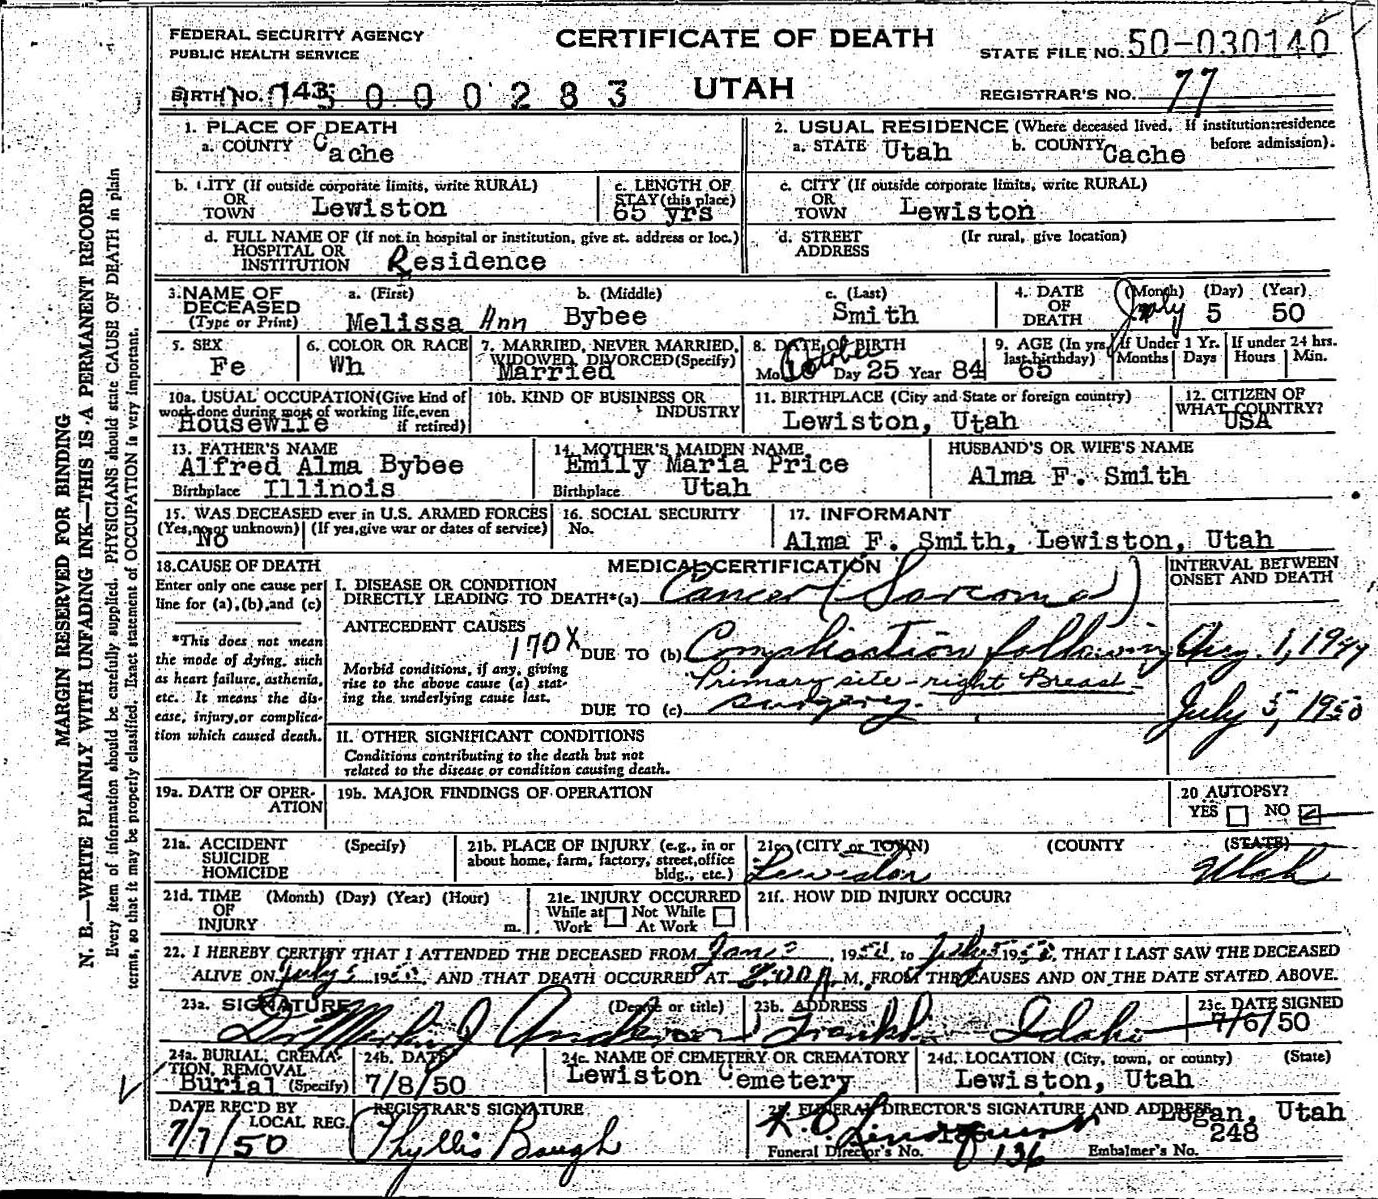 FEDERAL SECURITY AGENCY
PUBLIC HEALTH SERVICE
CERTIFICATE OF DEATH
UTAH
STATE FILE NO. 50-030140
BIRTH NO. 143
000283
REGISTRAR'S NO. 77
MARGIN RESERVED FOR BINDING
N. B.—WRITE PLAINLY WITH UNFADING INK—THIS IS A PERMANENT RECORD
Every item of information should be carefully supplied. PHYSICIANS should state CAUSE OF DEATH in plain
terms, so that it may be properly classified. Exact statement of OCCUPATION is very important.
1. PLACE OF DEATH
a. COUNTY Cache
2. USUAL RESIDENCE (Where deceased lived. If institution: residence before admission).
a. STATE Utah b. COUNTY Cache
b. CITY (If outside corporate limits, write RURAL)
OR TOWN Lewiston
c. LENGTH OF STAY (this place)
65 yrs
c. CITY (If outside corporate limits, write RURAL)
OR TOWN Lewiston
d. FULL NAME OF (If not in hospital or institution, give st. address or loc.)
HOSPITAL OR INSTITUTION Residence
d. STREET ADDRESS (If rural, give location)
3. NAME OF DECEASED (Type or Print)
a. (First) b. (Middle) c. (Last)
Melissa Ann Bybee Smith
4. DATE OF DEATH (Month) (Day) (Year)
July 5 50
5. SEX
Fe
6. COLOR OR RACE
Wh
7. MARRIED, NEVER MARRIED, WIDOWED, DIVORCED (Specify)
Married
8. DATE OF BIRTH
October
Mo. 10 Day 25 Year 84
9. AGE (In yrs. last birthday)
65
If Under 1 Yr. Months Days
If under 24 hrs. Hours Min.
10a. USUAL OCCUPATION (Give kind of work done during most of working life, even if retired)
Housewife
10b. KIND OF BUSINESS OR INDUSTRY
11. BIRTHPLACE (City and State or foreign country)
Lewiston, Utah
12. CITIZEN OF WHAT COUNTRY?
USA
13. FATHER'S NAME
Alfred Alma Bybee
Birthplace Illinois
14. MOTHER'S MAIDEN NAME
Emily Maria Price
Birthplace Utah
HUSBAND'S OR WIFE'S NAME
Alma F. Smith
15. WAS DECEASED ever in U.S. ARMED FORCES
(Yes, no or unknown) (If yes, give war or dates of service)
No
16. SOCIAL SECURITY No.
17. INFORMANT
Alma F. Smith, Lewiston, Utah
18. CAUSE OF DEATH
Enter only one cause per line for (a), (b), and (c)
*This does not mean the mode of dying, such as heart failure, asthenia, etc. It means the disease, injury, or complication which caused death.
MEDICAL CERTIFICATION
INTERVAL BETWEEN ONSET AND DEATH
I. DISEASE OR CONDITION
DIRECTLY LEADING TO DEATH*(a) Cancer (Sarcoma)
ANTECEDENT CAUSES
170X
Morbid conditions, if any, giving rise to the above cause (a) stating the underlying cause last.
DUE TO (b) Complication following Aug. 1, 1949
Primary site - right Breast -
DUE TO (c) surgery. July 5, 1950
II. OTHER SIGNIFICANT CONDITIONS
Conditions contributing to the death but not
related to the disease or condition causing death.
19a. DATE OF OPERATION
19b. MAJOR FINDINGS OF OPERATION
20 AUTOPSY?
YES NO
21a. ACCIDENT SUICIDE HOMICIDE (Specify)
21b. PLACE OF INJURY (e.g., in or about home, farm, factory, street, office bldg., etc.)
21c. (CITY or TOWN) (COUNTY (STATE)
Lewiston Utah
21d. TIME OF INJURY (Month) (Day) (Year) (Hour) m.
21e. INJURY OCCURRED
While at Work Not While At Work
21f. HOW DID INJURY OCCUR?
22. I HEREBY CERTIFY THAT I ATTENDED THE DECEASED FROM 1950, to July 5 1950, THAT I LAST SAW THE DECEASED
ALIVE ON July 5 1950, AND THAT DEATH OCCURRED AT M., FROM THE CAUSES AND ON THE DATE STATED ABOVE.
23a. SIGNATURE (Degree or title)
Dr Merlin J Anderson
23b. ADDRESS
Franklin Idaho
23c. DATE SIGNED
7/6/50
24a. BURIAL, CREMATION, REMOVAL (Specify)
Burial
24b. DATE
7/8/50
24c. NAME OF CEMETERY OR CREMATORY
Lewiston Cemetery
24d. LOCATION (City, town, or county) (State)
Lewiston, Utah
DATE REC'D BY LOCAL REG.
7/7/50
REGISTRAR'S SIGNATURE
Phyllis Baugh
25. FUNERAL DIRECTOR'S SIGNATURE AND ADDRESS
Logan, Utah
Funeral Director's No. 136
Embalmer's No. 248